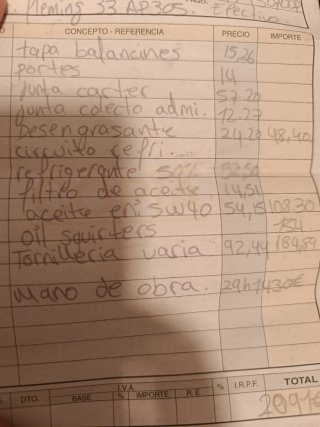 Fleming 53 AP305. Efectivo
CONCEPTO - REFERENCIA PRECIO IMPORTE
tapa balancines 15,26
portes 14
junta carter 57.20
junta colecto admi. 12.27
Desengrasante 24,20 48,40
circuito refri.....
refrigerante 50% 52,50
filtro de aceite 14,51
aceite eni 5W40 54,15 108.30
oil squirters 184.
Tornilleria varia. 92,44 184,89
mano de obra. 29h 1430€
DTO. I.V.A. R.E. % I.R.P.F. TOTAL
BASE % IMPORTE
2091€